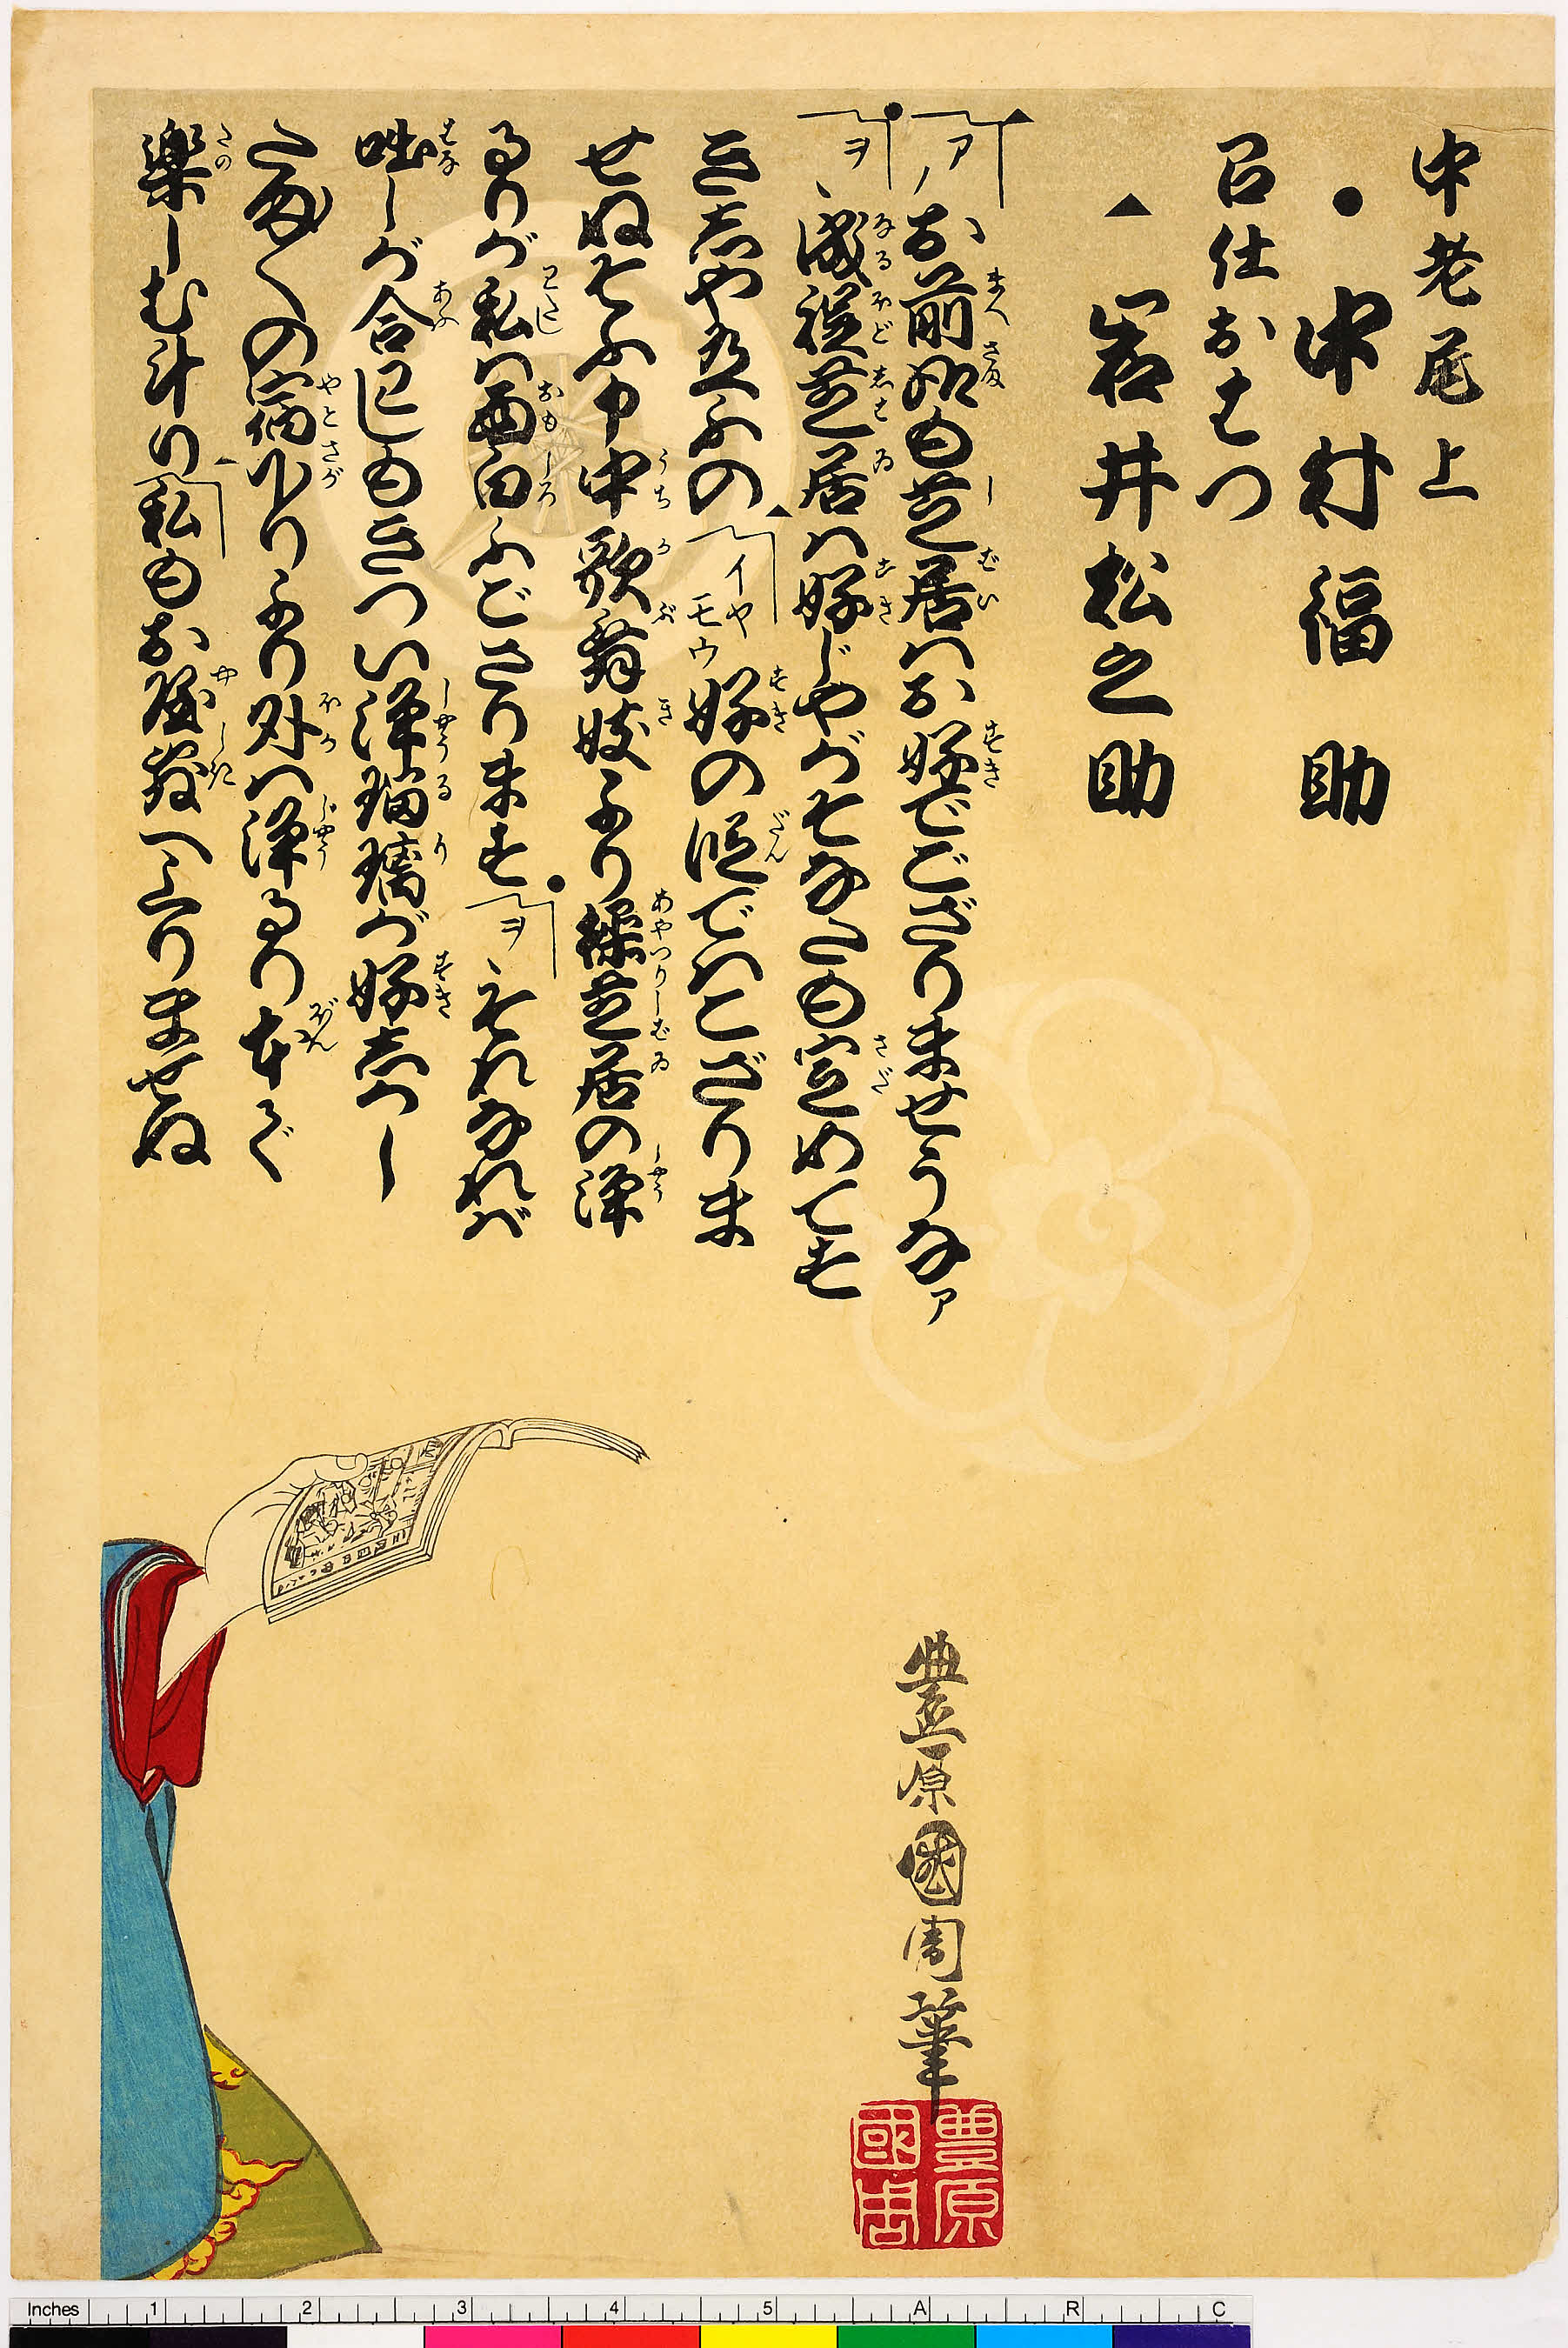 中老尾上
●中村福助
召仕おはつ
▲岩井松之助
▲アノお前好も芝居ハお好でござりませうなァ
●ヲヽ成程芝居ハ好じやがそなたも定めてす
きしや然ふの▲イヤモウ好の段でハこざりま
せぬそふ申中歌舞妓より操芝居の浄
るりが私ハ面白ふござります●ヲヽそれなれば
咄しが合わしもきつい浄瑠璃が好しかし
たま〱の宿下りより外ハ浄るり本で
楽しむ斗り▲私もお屋敷へ上りませぬ
豊原國周筆
豊原
國周
Inches 1 2 3 4 5 A R C